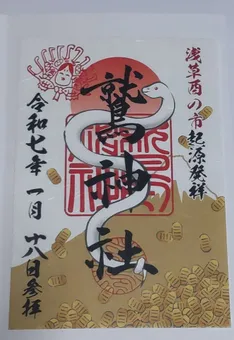 浅草酉の市起源発祥
鷲神社
令和七年 一月 十八日参拝